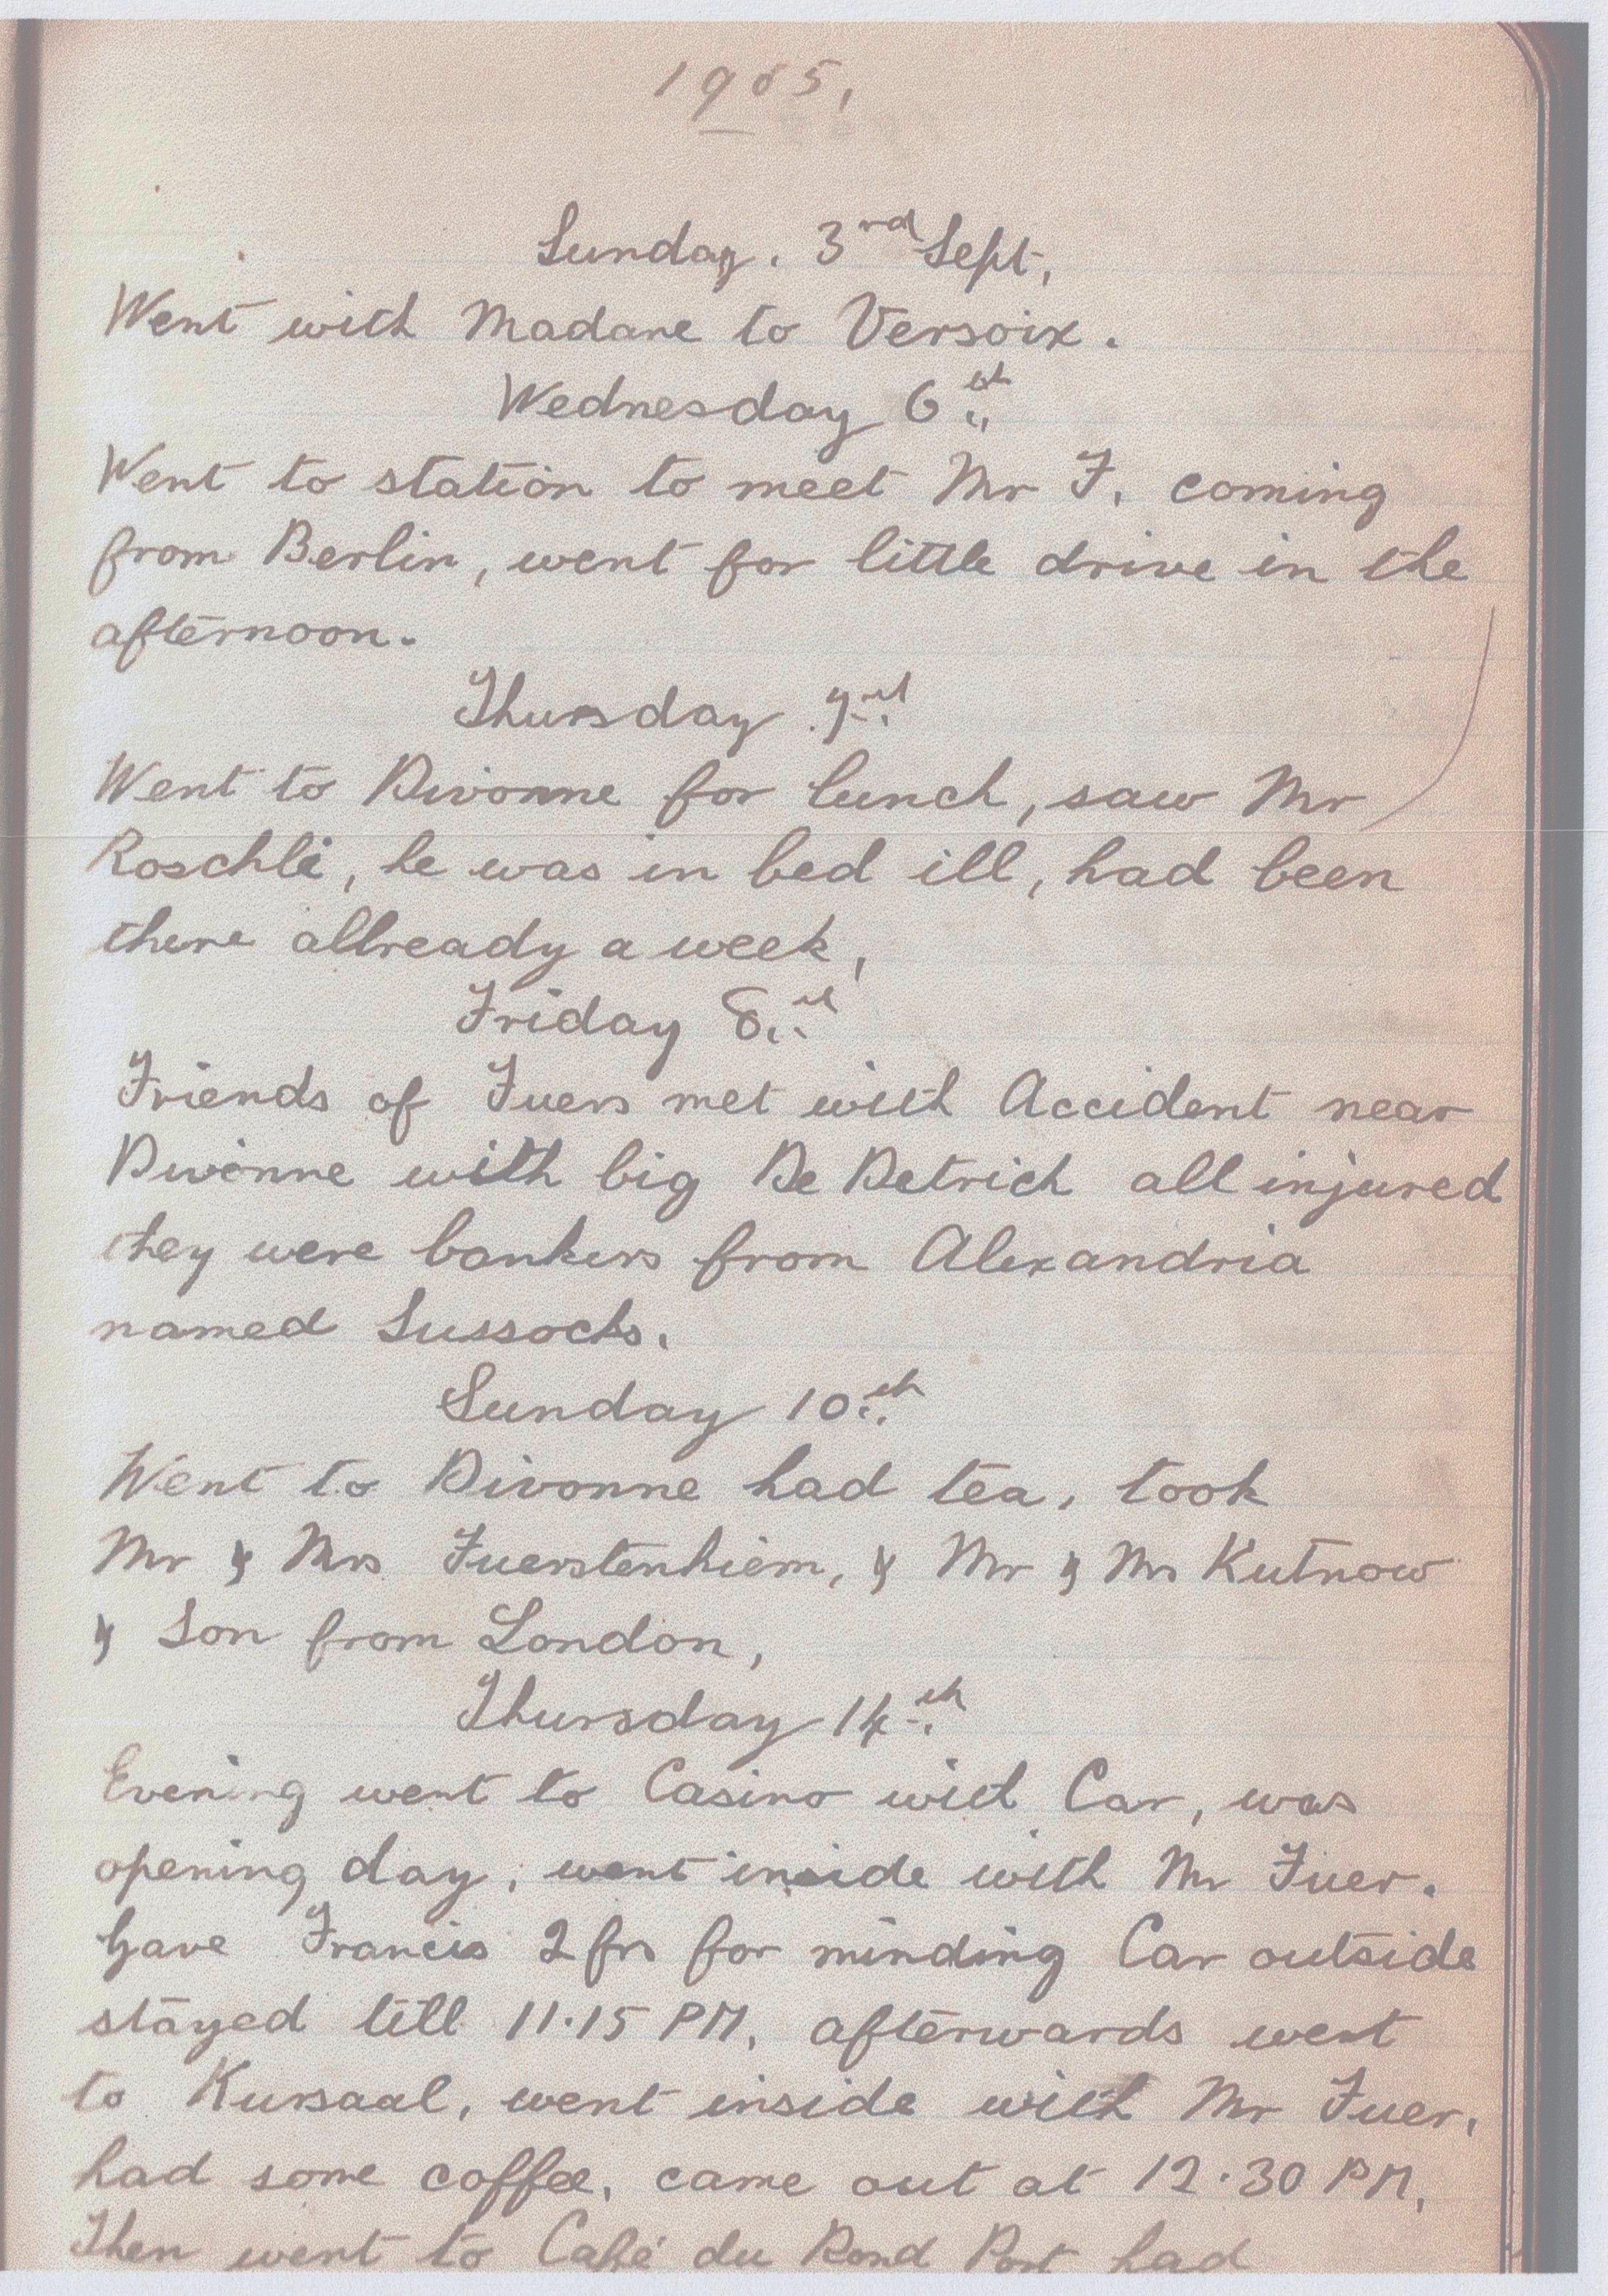 1905,
Sunday. 3rd Sept.
Went with Madame to Versoix.
Wednesday 6th
Went to station to meet Mr F. coming
from Berlin, went for little drive in the
afternoon.
Thursday 7th
Went to Divonne for lunch, saw Mr
Roschli, he was in bed ill, had been
there allready a week,
Friday 8th
Friends of Fuers met with Accident near
Divonne with big De Detrich all injured
they were bankers from Alexandria
named Sussochs.
Sunday 10th
Went to Divonne had tea, took
Mr & Mrs Fuerstenhiem, & Mr & Mrs Kutnow
& Son from London,
Thursday 14th
Evening went to Casino with Car, was
opening day, went inside with Mr Fuer.
Gave Francis 2 frs for minding Car outside
stayed till 11.15 PM, afterwards went
to Kursaal, went inside with Mr Fuer,
had some coffee, came out at 12.30 PM,
Then went to Café du Rond Port had